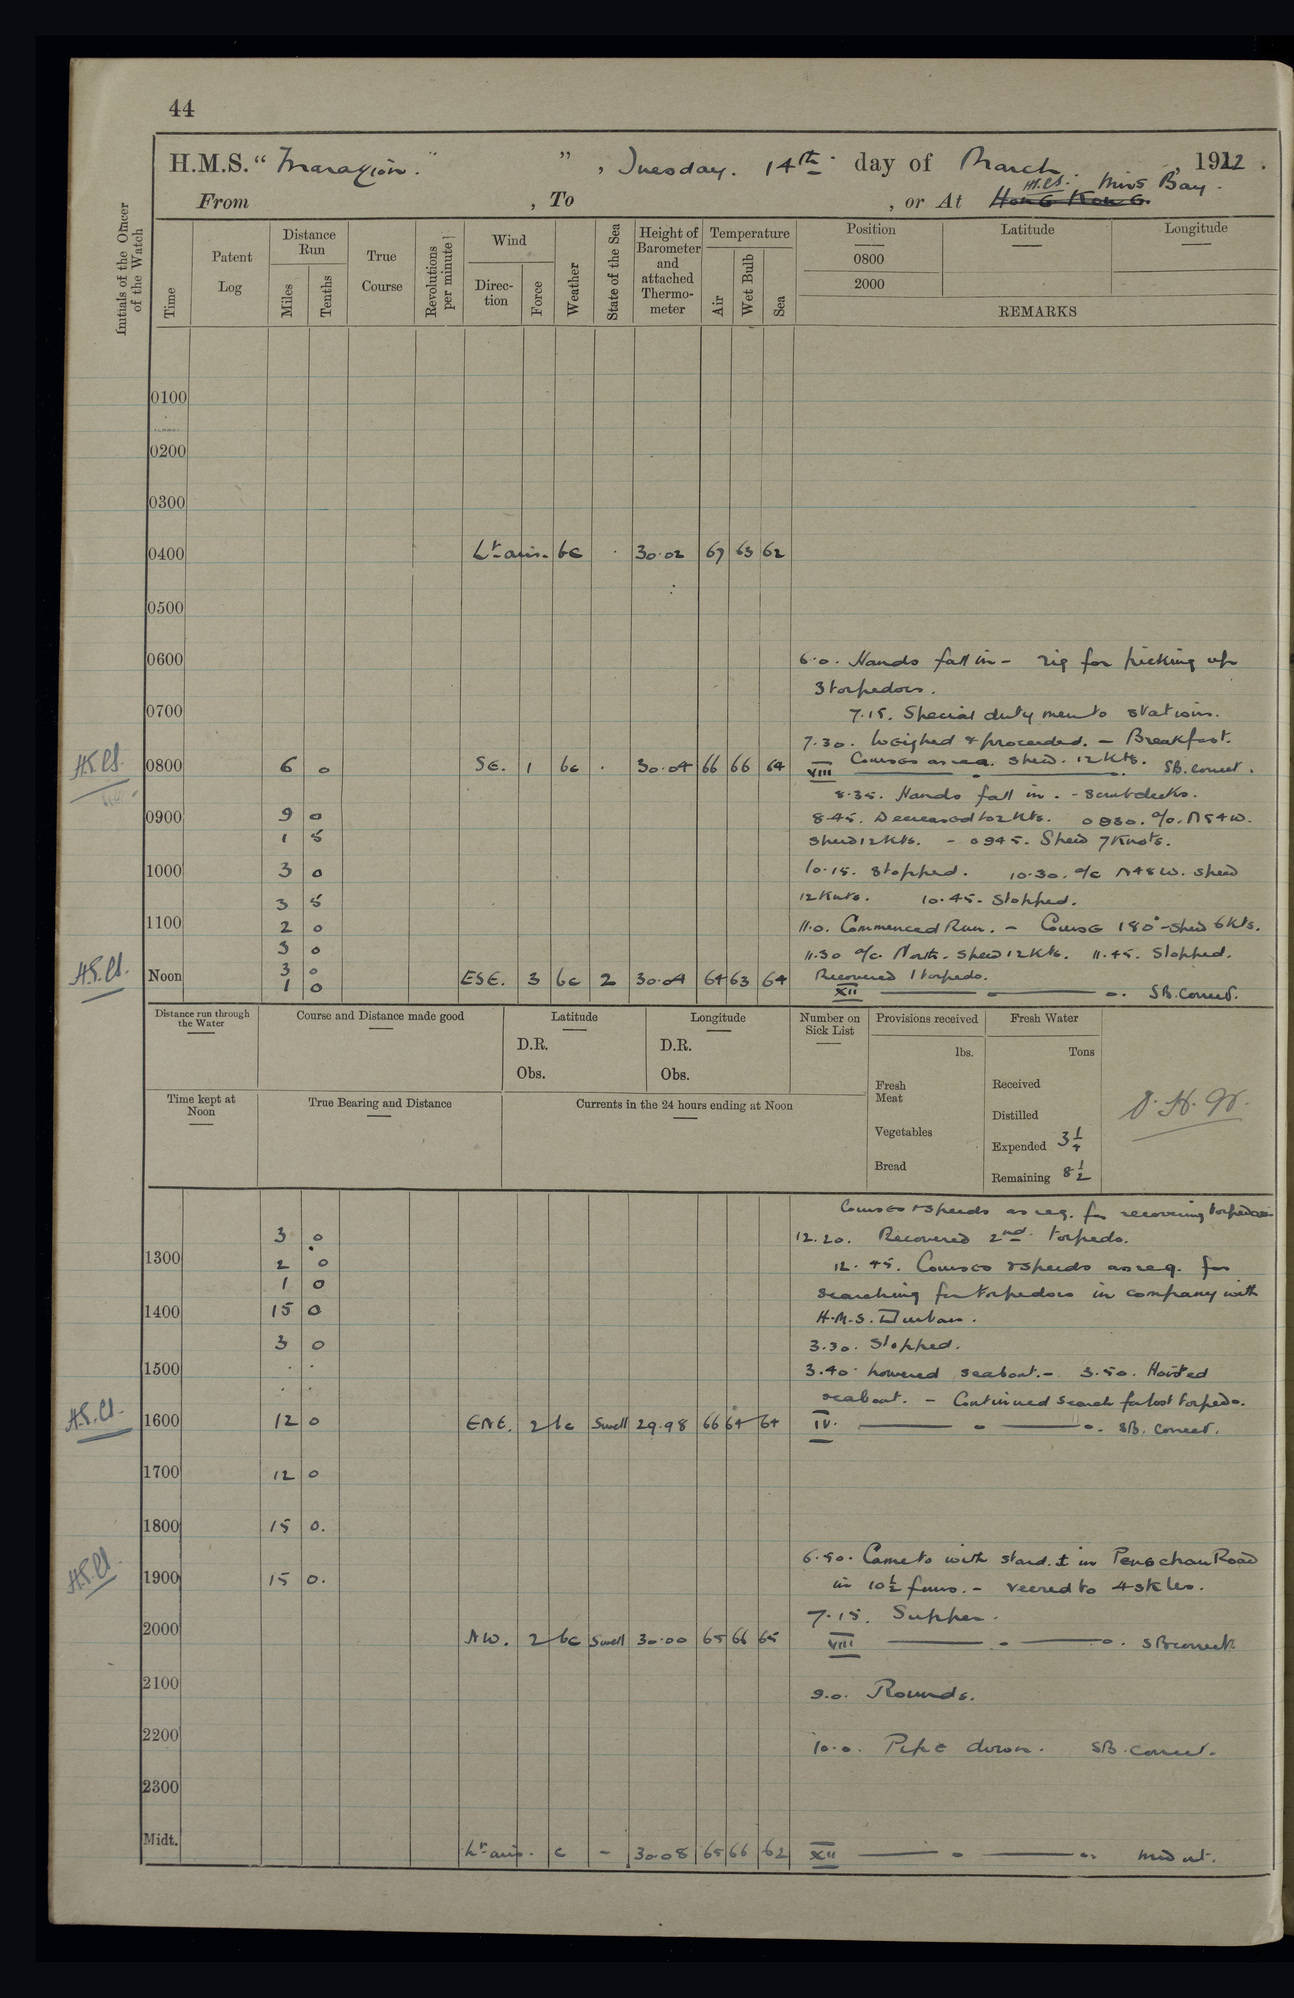 44
H.M.S. “ Marazion. ” , Tuesday. 14th day of March , 1922 .
From , To , or At Hong Kong. H.S.B. Mirs Bay.
Initials of the Officer of the Watch
Time
Patent Log
Distance Run
Miles
Tenths
True Course
Revolutions per minute
Wind
Direction
Force
Weather
State of the Sea
Height of Barometer and attached Thermometer
Temperature
Air
Wet Bulb
Sea
Position Latitude Longitude
0800
2000
REMARKS
0100
0200
0300
0400 Lt airs. bc . 30.02 67 63 62
0500
0600 6.0. Hands fall in - rig for picking up
3 torpedoes.
0700 7.15. Special duty men to stations.
7.30. Weighed & proceeded. - Breakfast.
Courses as req. speed. 12 kts.
0800 6 0 SE. 1 bc . 30.04 66 66 64 VIII SB. correct.
8.35. Hands fall in. - Scrub decks.
0900 9 0 8.45. Decreased to 2 kts. 0930. a/c. N54W.
1 5 Speed 12 kts. - 0945. Speed 7 Knots.
1000 3 0 10.15. Stopped. 10.30. a/c N48W. speed
3 5 12 Knts. 10.45. Stopped.
1100 2 0 11.0. Commenced Run. - Course 180° - speed 6 kts.
3 0 11.30 a/c. North. speed 12 kts. 11.45. Stopped.
Noon 3 0 ESE. 3 bc 2 30.04 64 63 64 Recovered 1 torpedo.
1 0 XII SB. Correct.
Distance run through the Water
Course and Distance made good
Latitude
D.R.
Obs.
Longitude
D.R.
Obs.
Number on Sick List
Provisions received
lbs.
Fresh Meat
Vegetables
Bread
Fresh Water
Tons
Received
Distilled
Expended 3 1/4
Remaining 8 1/2
Time kept at Noon
True Bearing and Distance
Currents in the 24 hours ending at Noon
Courses & speeds as req. for recovering torpedoes
3 0 12.20. Recovered 2nd torpedo.
1300 2 0 12.45. Courses & speeds as req. for
1 0 searching for torpedoes in company with
1400 15 0 H.M.S. Durban.
3 0 3.30. Stopped.
1500 . . 3.40. Lowered seaboat. - 3.50. Hoisted
. . seaboat. - Continued search for lost torpedo.
1600 12 0 ENE. 2 bc Swell 29.98 66 64 64 IV. SB. correct.
1700 12 0
1800 15 0.
6.50. Came to with starbd. in Road
1900 15 0. in 10 1/2 fms. - veered to 4 skles.
7.15. Supper.
2000 NW. 2 bc Swell 30.00 65 66 65 VIII SB correct
2100 9.0. Rounds.
2200 10.0. Pipe down. SB. correct.
2300
Midt. Lt airs. c - 30.08 65 66 62 XII